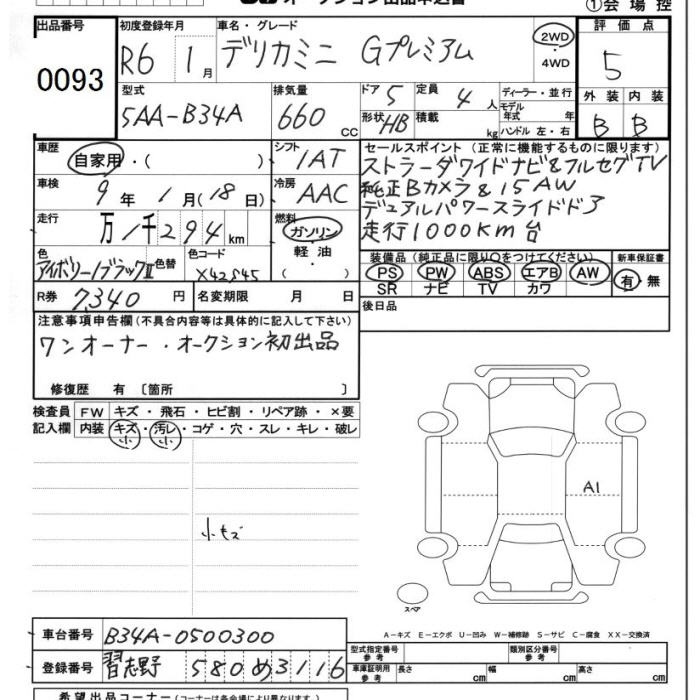 オークション出品申込書
①会場控
出品番号
0093
初度登録年月
R6 1月
車名・グレード
デリカミニ Gプレミアム
2WD
・
4WD
評価点
5
外装 内装
B B
型式
5AA-B34A
排気量
660 CC
ドア 5
定員 4人
形状 HB
積載 kg
ディーラー・並行
モデル年式 年
ハンドル 左・右
車歴
自家用・( )
シフト
IAT
車検
9年1月(18日)
冷房
AAC
走行
万1千294km
燃料
ガソリン
・
軽油
色
アイボリー/ブラックⅡ
色替
色コード
X42545
R券 7,340円
名変期限 月 日
セールスポイント (正常に機能するものに限ります)
ストラーダワイドナビ&フルセグTV
純正Bカメラ&15AW
デュアルパワースライドドア
走行1000KM台
装備品(純正品に限り○をつけてください)
PS PW ABS エアB AW
SR ナビ TV カワ
新車保証書
有・無
後日品
注意事項申告欄(不具合内容等は具体的に記入して下さい)
ワンオーナー・オークション初出品
修復歴 有〔箇所 〕
検査員記入欄
FW キズ・飛石・ヒビ割・リペア跡・×要
内装 キズ・汚レ・コゲ・穴・スレ・キレ・破レ
小 小
小キズ
A1
スペア
車台番号 B34A-0500300
登録番号 習志野 580 め 3116
A-キズ E-エクボ U-凹み W-補修跡 S-サビ C-腐食 XX-交換済
型式指定番号 参考
類別区分番号 参考
車庫証明用 参考
長さ cm 幅 cm 高さ cm
希望出品コーナー(コーナーは各会場により異なります)